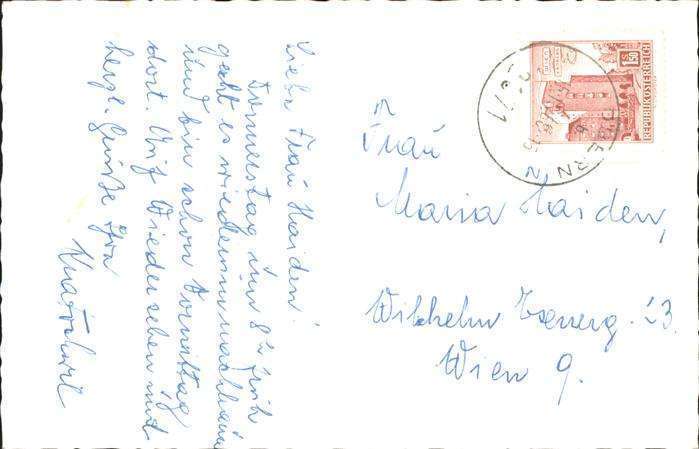 Liebe Frau Haiden!
Donnerstag um 8h früh
geht es wiederum nachhause
und bin schon Vormittag
dort. Auf Wiedersehen und
herzl. Grüße Ihre
Frau
Maria Haiden,
Wilhelm Exnerg. 23.
Wien 9.
REPUBLIK ÖSTERREICH
S 1.50